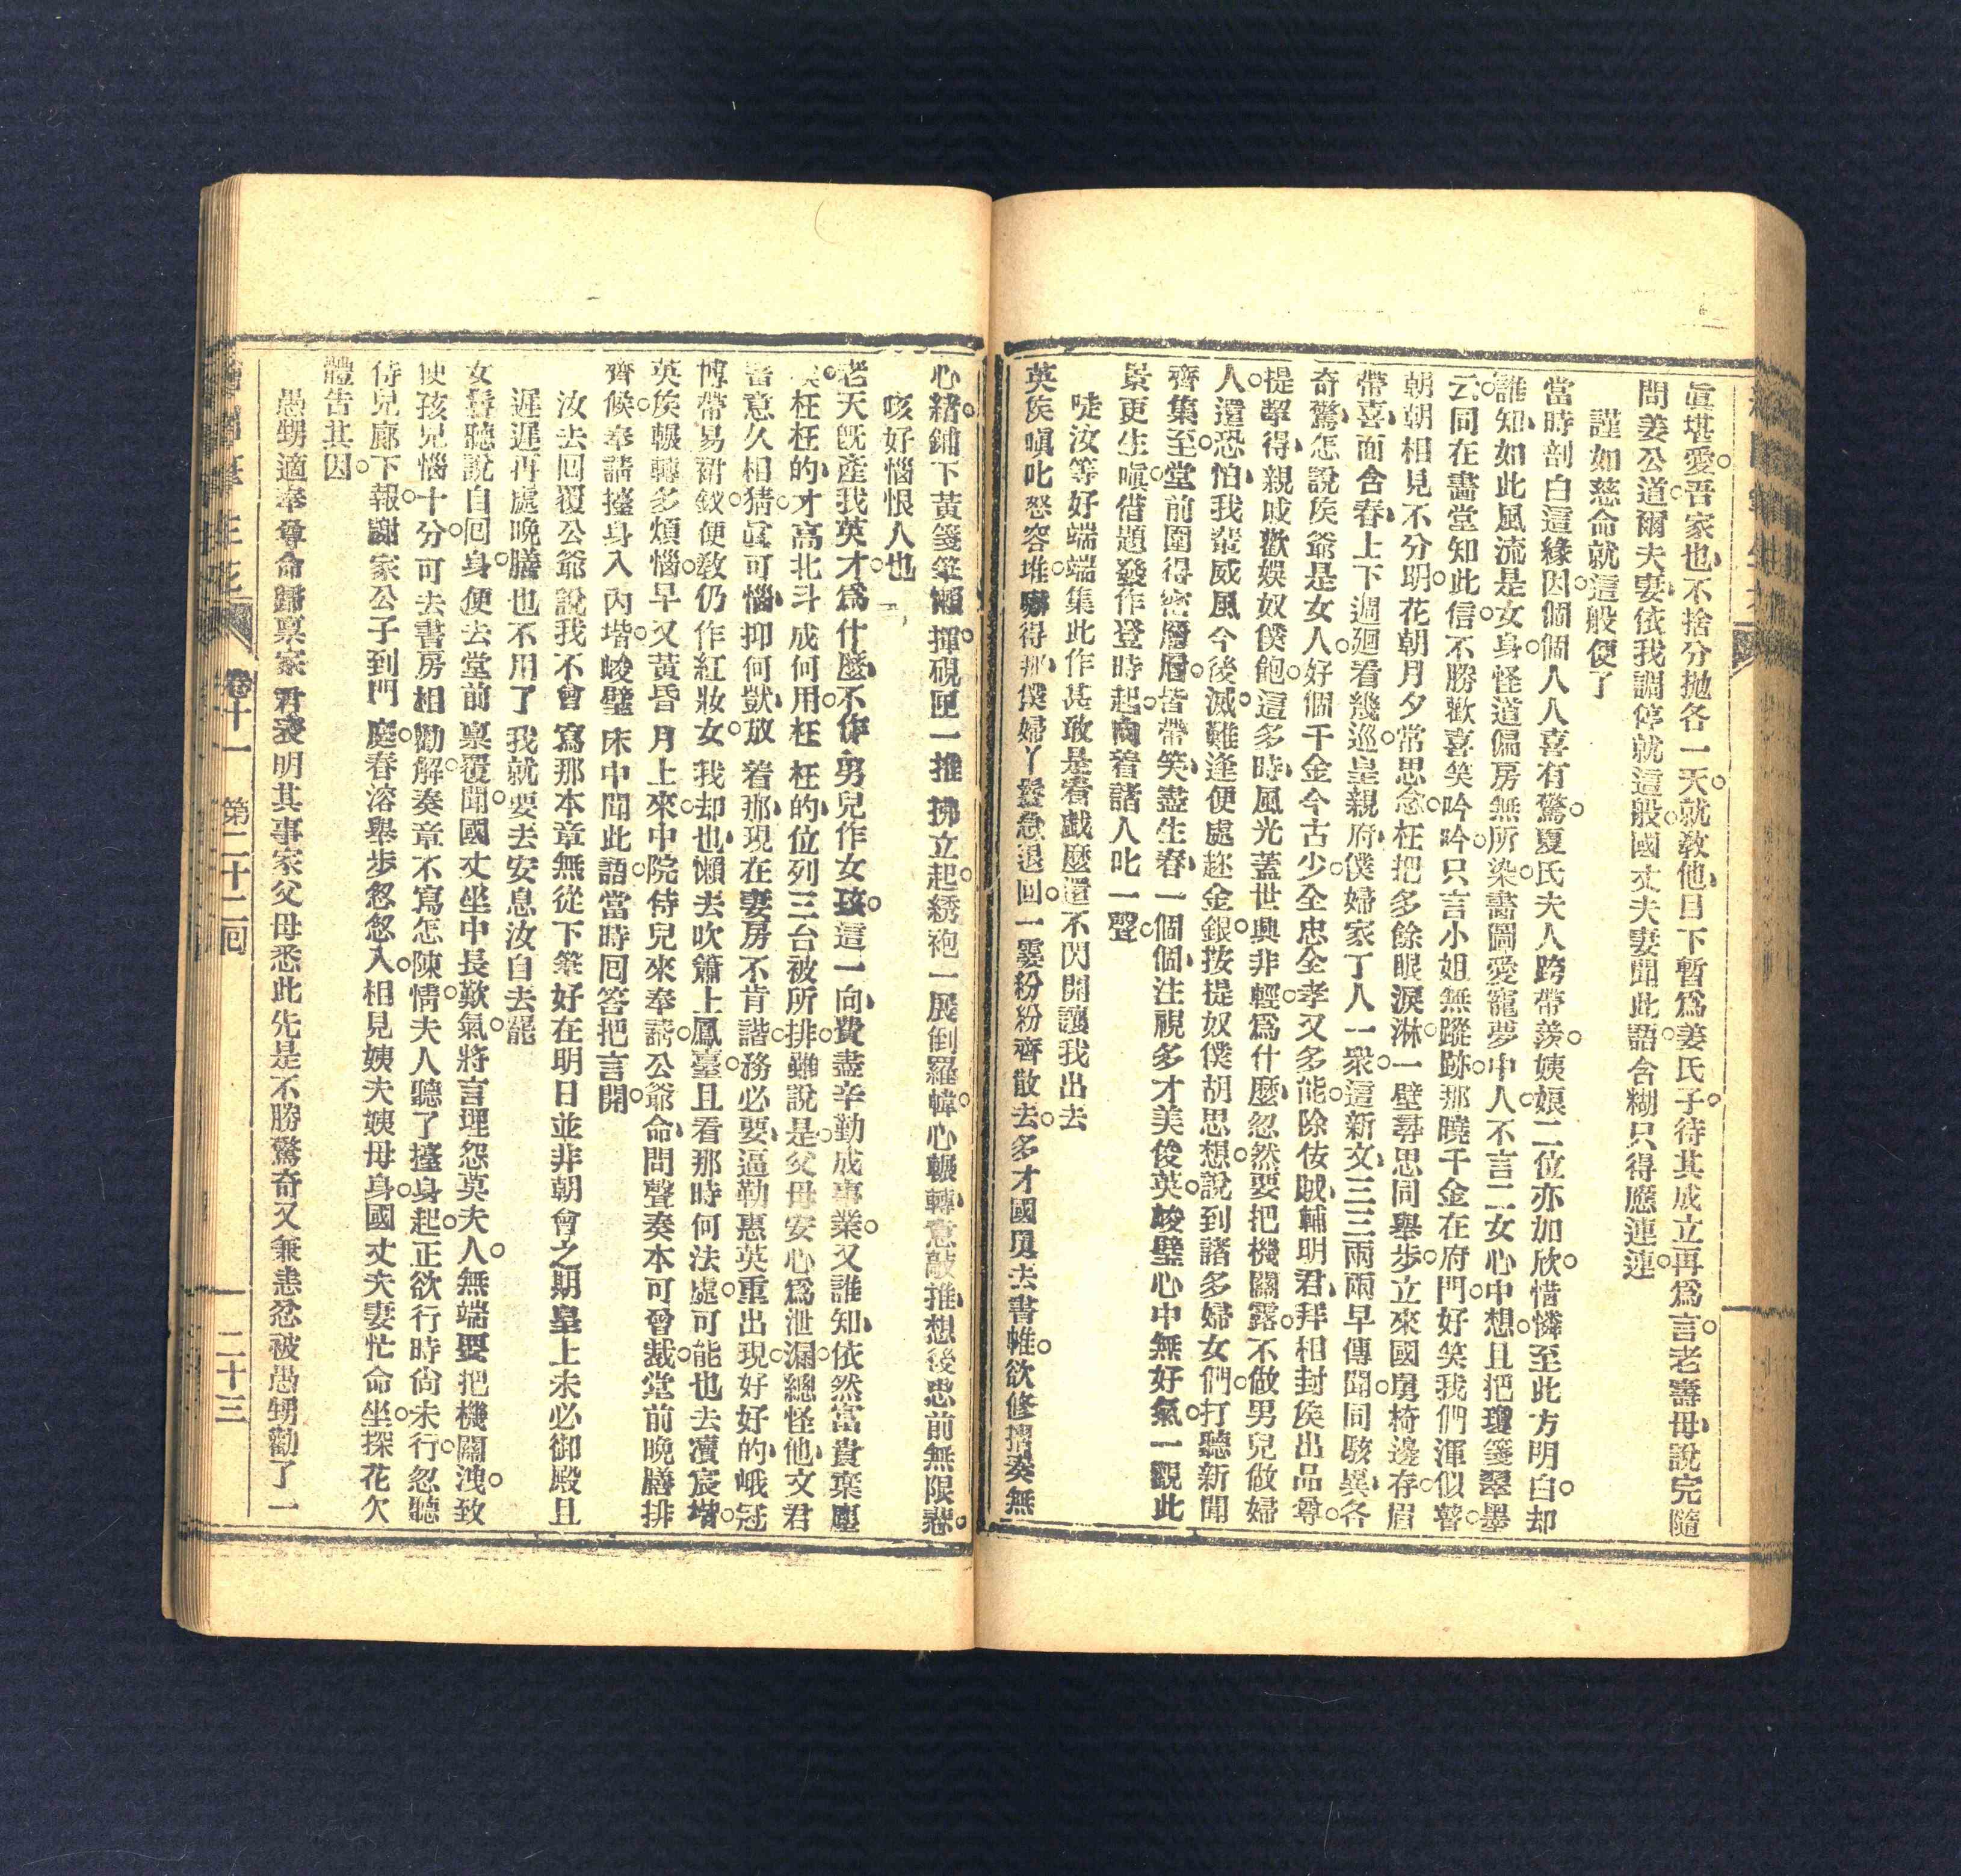 眞堪愛吾家也不捨分拋各一天就敎他目下暫爲姜氏子待其成立再爲言老壽母說完隨
問姜公道爾夫妻依我調停就這般國丈夫妻聞此語含糊只得應連連
謹如慈命就這般便了
當時剖白這緣因個個人人喜有驚夏氏夫人跨帶羨姨娘二位亦加欣惜憐至此方明白却
誰知如此風流是女身怪道偏房無所染畵圖愛寵夢中人不言二女心中想且把瓊箋翠墨
云同在畵堂知此信不勝歡喜笑吟吟只言小姐無蹤跡那曉千金在府門好笑我們渾似瞽
朝朝相見不分明花朝月夕常思念枉把多餘眼淚淋一壁尋思同舉步立來國舅椅邊存眉
帶喜面含春上下週廻看幾巡皇親府僕婦家丁人一衆這新文三三兩兩早傳聞同駭異各
奇驚怎說侯爺是女人好個千金今古少全忠全孝又多能除侫賊輔明君拜相封侯出品尊
提挈得親戚歡娛奴僕飽這多時風光蓋世興非輕爲什麼忽然要把機關露不做男兒做婦
人還恐怕我輩威風今後滅難逢便處趂金銀按提奴僕胡思想說到諸多婦女們打聽新聞
齊集至堂前圍得密層層皆帶笑盡生春一個個注視多才美俊英峻璧心中無好氣一觀此
景更生嗔借題發作登時起向着諸人叱一聲
唗汝等好端端集此作甚敢是看戱麼還不閃開讓我出去
英侯嗔叱怒容堆嚇得那僕婦丫鬟急退回一霎紛紛齊散去多才國舅去書帷欲修摺奏無
心緖鋪下黃箋筆懶揮硯匣一推拂立起綉袍一展倒羅幃心輾轉意敲推想後思前無限悲
咳好惱恨人也
老天旣產我英才爲什麼不作男兒作女孩這一向費盡辛勤成事業又誰知依然富貴棄塵
埃枉枉的才高北斗成何用枉枉的位列三台被所排雖說是父母安心爲泄漏總怪他文君
眷意久相猜眞可惱抑何獃放着那現在妻房不肯諧務必要逼勒惠英重出現好好的峨冠
博帶易裙釵便敎仍作紅妝女我却也懶去吹簫上鳳臺且看那時何法處可能也去瀆宸堦
英侯輾轉多煩惱早又黃昏月上來中院侍兒來奉請公爺命問聲奏本可曾裁堂前晚膳排
齊候奉請擡身入內堦峻璧床中聞此語當時囘答把言開
汝去回覆公爺說我不會寫那本章無從下筆好在明日並非朝會之期皇上未必御殿且
遲遲再處晚膳也不用了我就要去安息汝自去罷
女鬟聽說自囘身便去堂前稟覆聞國丈坐中長歎氣將言理怨莫夫人無端要把機關洩致
使孩兒惱十分可去書房相勸解奏章不寫怎陳情夫人聽了擡身起正欲行時尙未行忽聽
侍兒廊下報謝家公子到門庭春溶舉步忽忽入相見姨夫姨母身國丈夫妻忙命坐探花欠
體告其因
愚甥適奉尊命歸稟家君袠明其事家父母悉此先是不勝驚奇又兼恚忿被愚甥勸了一
卷十一　第二十二回　二十三